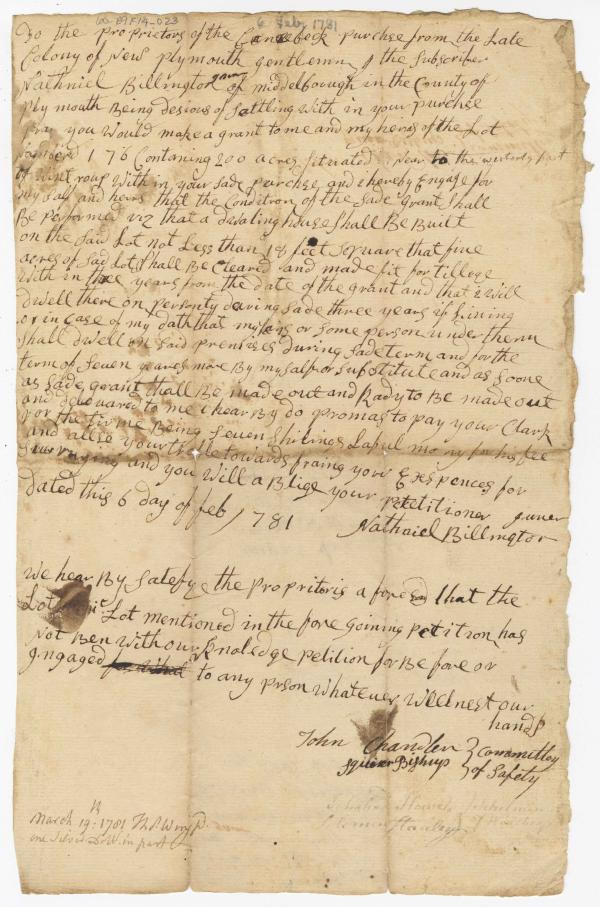 Co. 89 F14-023
6 Feby 1781
To the Proprietors of the Cannebeck purchse from the Late
Colony of New Plymouth gentlemn I the Subscriber
Nathniel Billington of middelborough in the County of
Plymouth Being desious of Sattling With in your purchse
Pray you Would make a grant to me and my heirs of the Lot
Numberd 176 Contaning 200 acres Situated Near to the westerly part
of Wintroup With in your Sade purchse and i hereby Engage for
my Salf and heirs that the Condition of the Sade grant Shall
Be Performed viz that a dwaling house Shall Be Built
on the Said Lot not Less than 18 feet Squaare that five
acres of Sad Lot Shall Be Cleared and made fit for tillege
With in thre years from the date of the grant and that I Will
dwell there on Personty during Sade three years if Living
or in Case of my dath that my hirs or Some person under them
Shall dwell on Said premises during Sade term and for the
term of Seven years more By my Salf or Substitute and as Soone
as Sade grant Shall Be made out and Rady to Be made out
and delivared to me i hear By do promas to pay your Clark
for the time Being Seven Shilings Lafull mony for his fee
and allso towards fraing your Exspences for
Survaying and you Will a Blige your Petetitioner juner
Dated this 6 day of feb 1781 Nathaiel Billington
We hear By Satefye the Propritoris a fore Sd that the
Lot Lot mentioned in the fore Goining Petition has
Not Ben With our knoledge Petition for Be fore or
Jngaged to any prson Whatever Wittnest our
hands
John Chandler } Committey
Squier Bishup } of Safety
March 19: 1781
one Silver Dolr. in part